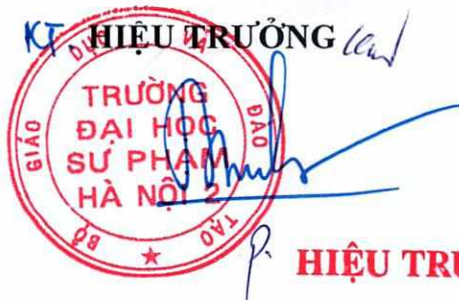 KT. HIỆU TRƯỞNG
BỘ GIÁO DỤC VÀ ĐÀO TẠO
TRƯỜNG
ĐẠI HỌC
SƯ PHẠM
HÀ NỘI 2
P. HIỆU TRƯ